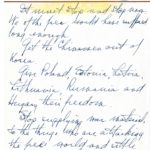 It must stop and stop now.
We of the free world have suffered
long enough.
Get the Chinamen out of
Korea.
Give Poland, Estonia, Latvia,
Lithuania, Rumania and
Hungary their freedom.
Stop supplying war materials
to the thugs who are attacking
the free world and settle